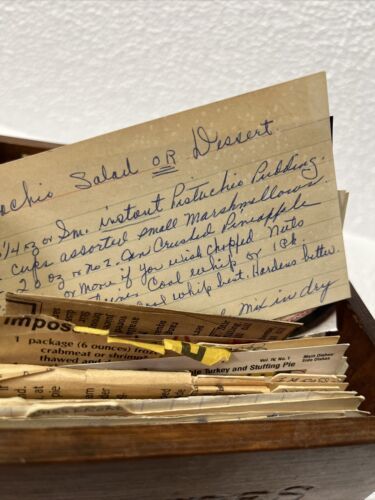 achio Salad OR Dessert
1/4 oz or Sm. instant Pistachio Pudding.
cups assorted small Marshmallows
20 oz or No 2. Can Crushed Pineapple
or more if you wish chopped Nuts
Cool whip or 1 pk.
Cool whip best. Hardens better.
mix in dry
Impos
1 package (6 ounces) froz
crabmeat or shrimp
thawed and
Vol. IV, No. 1
Main Dishes
Side Dishes
de Turkey and Stuffing Pie